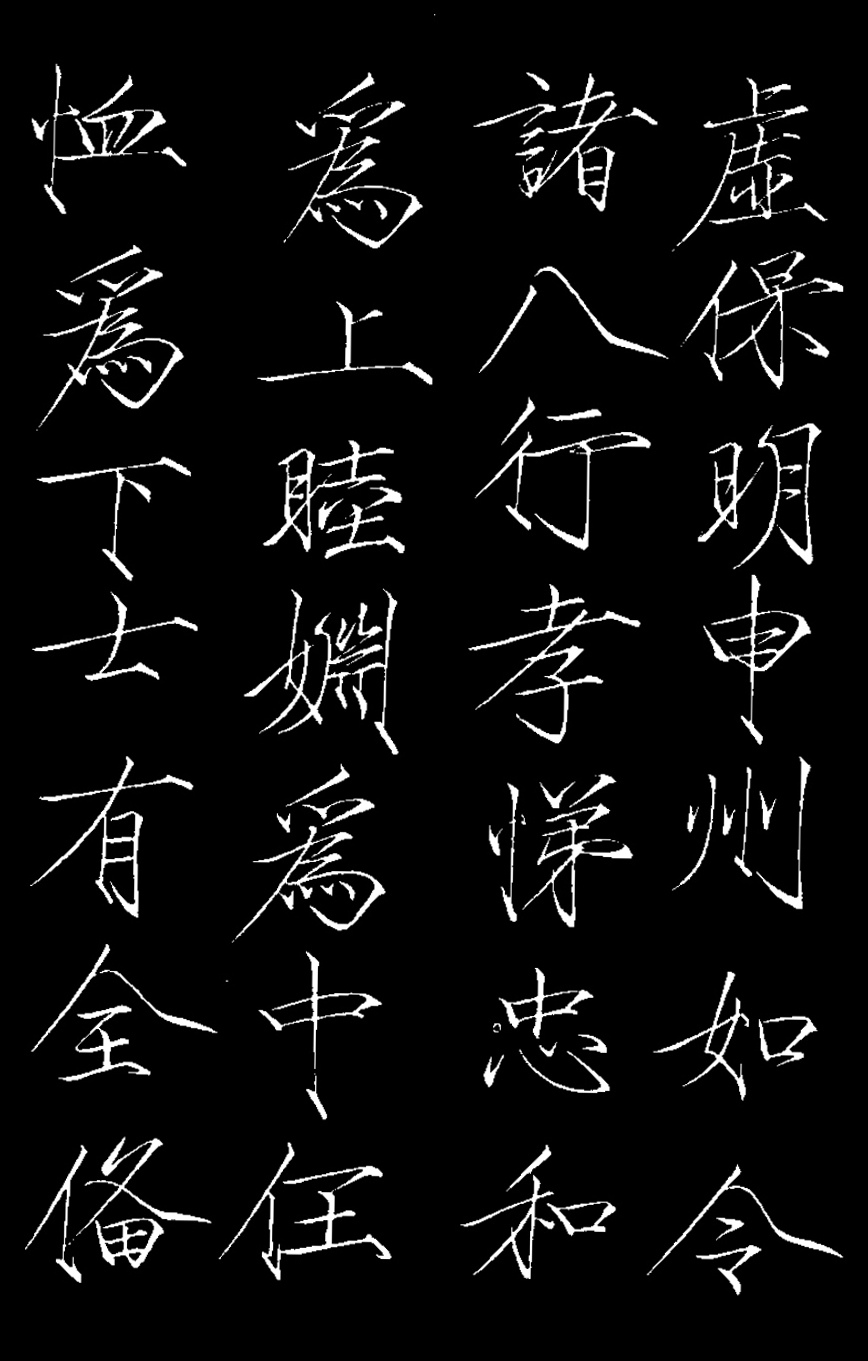 虛保明申州如令
諸八行孝悌忠和
為上睦婣為中任
恤為下士有全偹